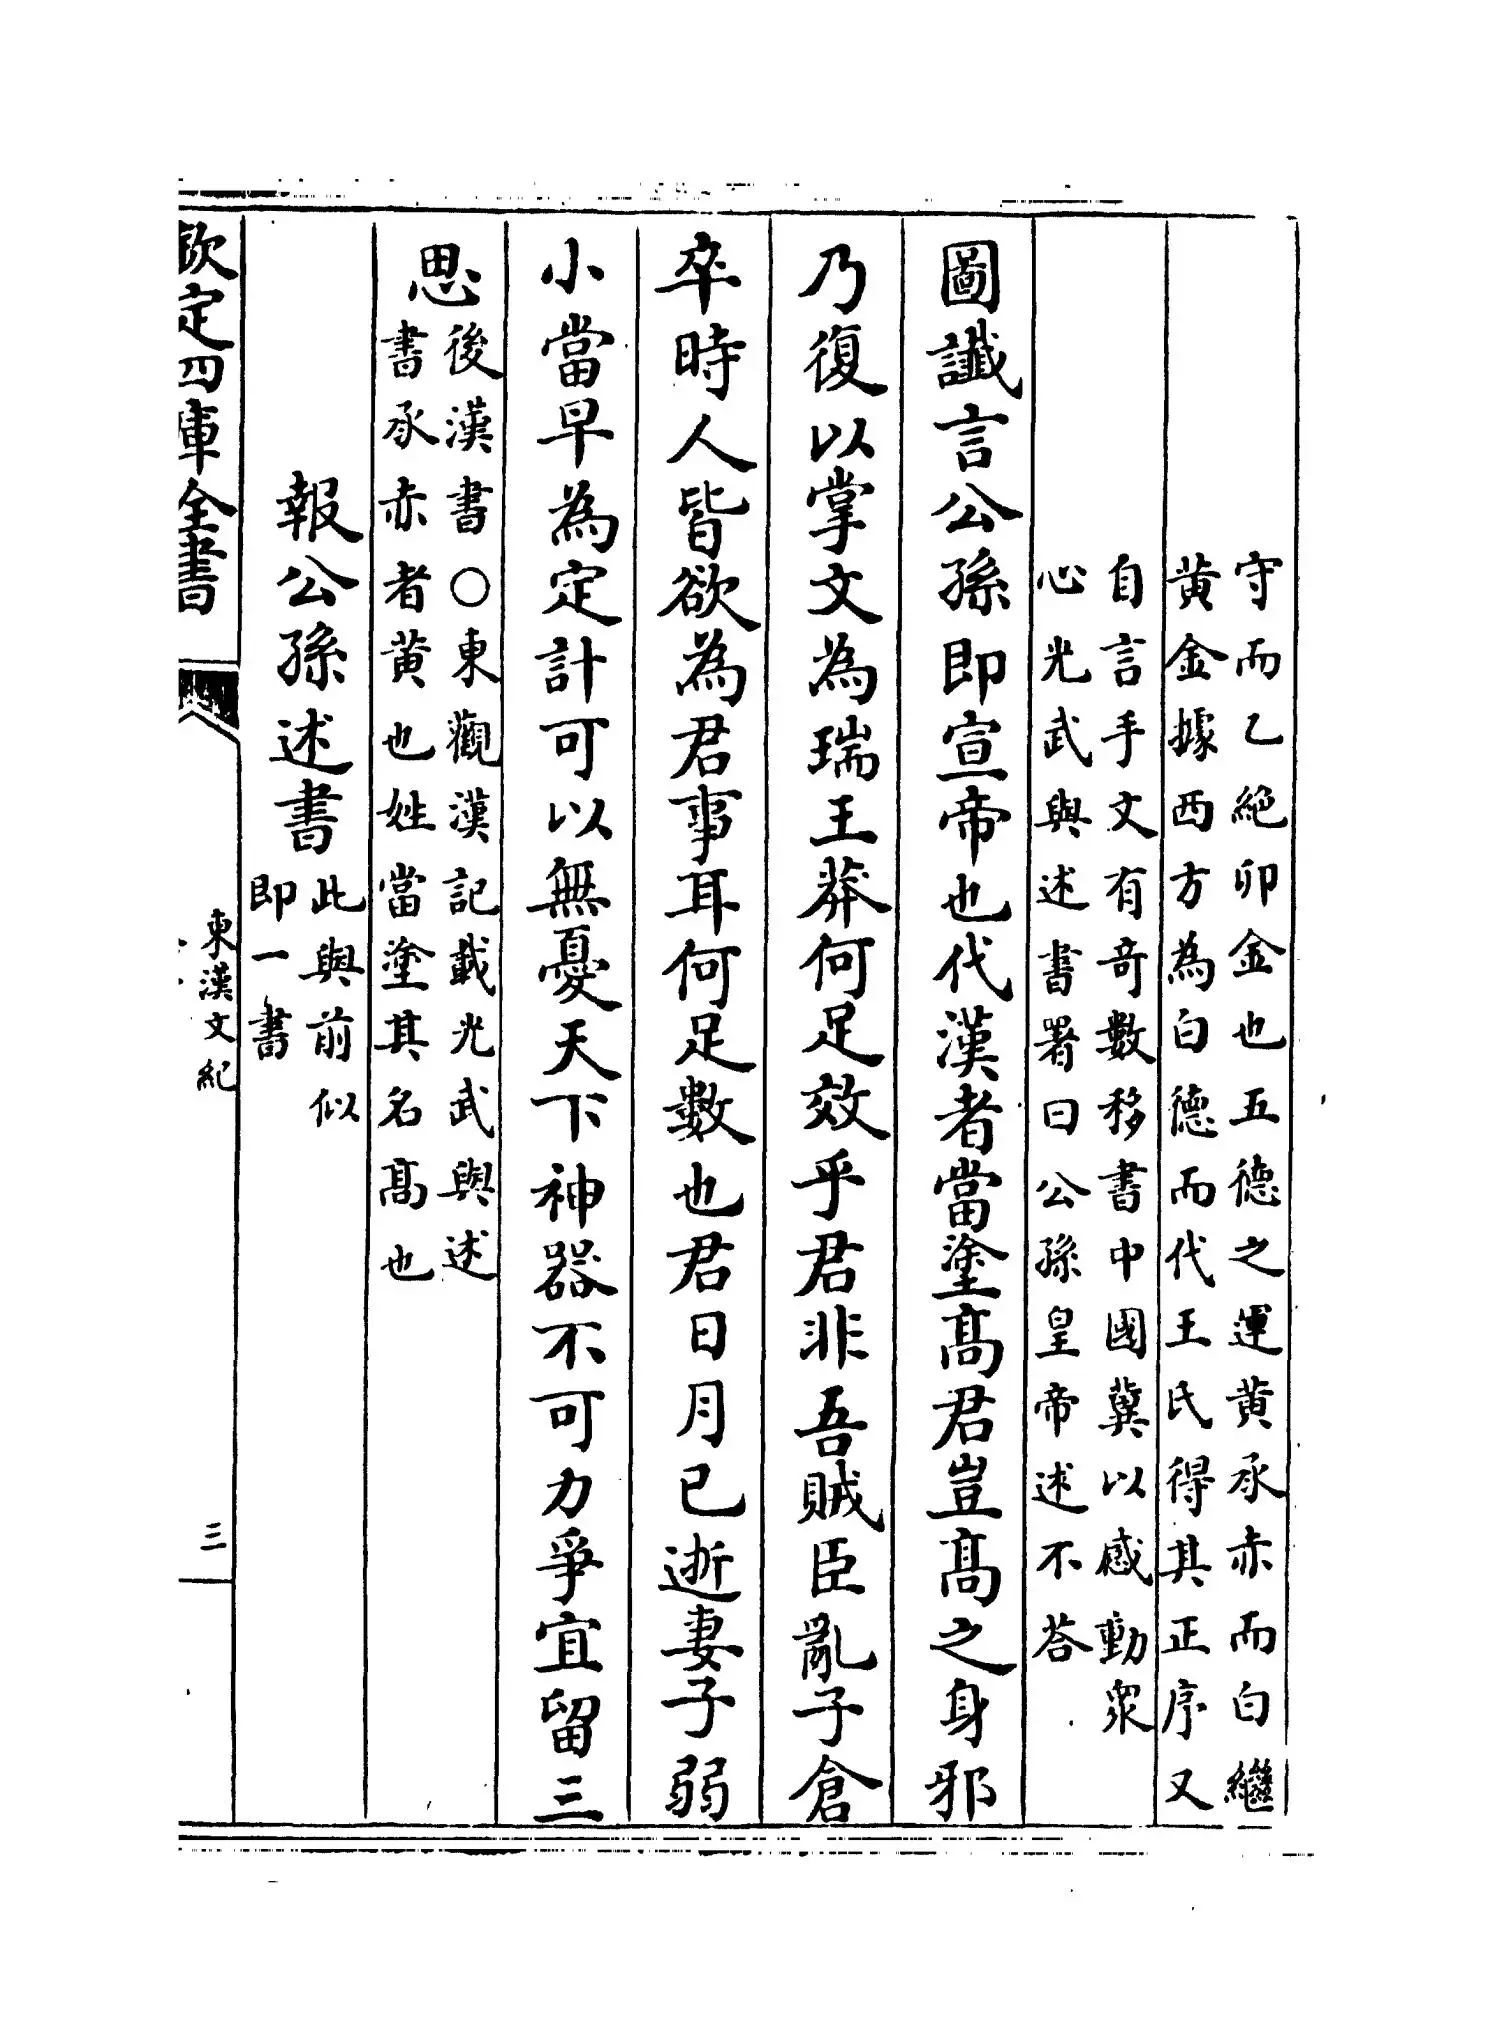 守而乙絶卯金也五德之運黄承赤而白繼
黄金據西方為白德而代王氏得其正序又
自言手文有竒數移書中國兾以感動衆
心光武與述書署曰公孫皇帝述不荅
圖讖言公孫即宣帝也代漢者當塗髙君豈髙之身邪
乃復以掌文為瑞王莽何足效乎君非吾賊臣亂子倉
卒時人皆欲為君事耳何足數也君日月已逝妻子弱
小當早為定計可以無憂天下神器不可力爭宜留三
思
後漢書○東觀漢記載光武與述
書承赤者黄也姓當塗其名髙也
報公孫述書
此與前似
即一書
欽定四庫全書
東漢文紀
三